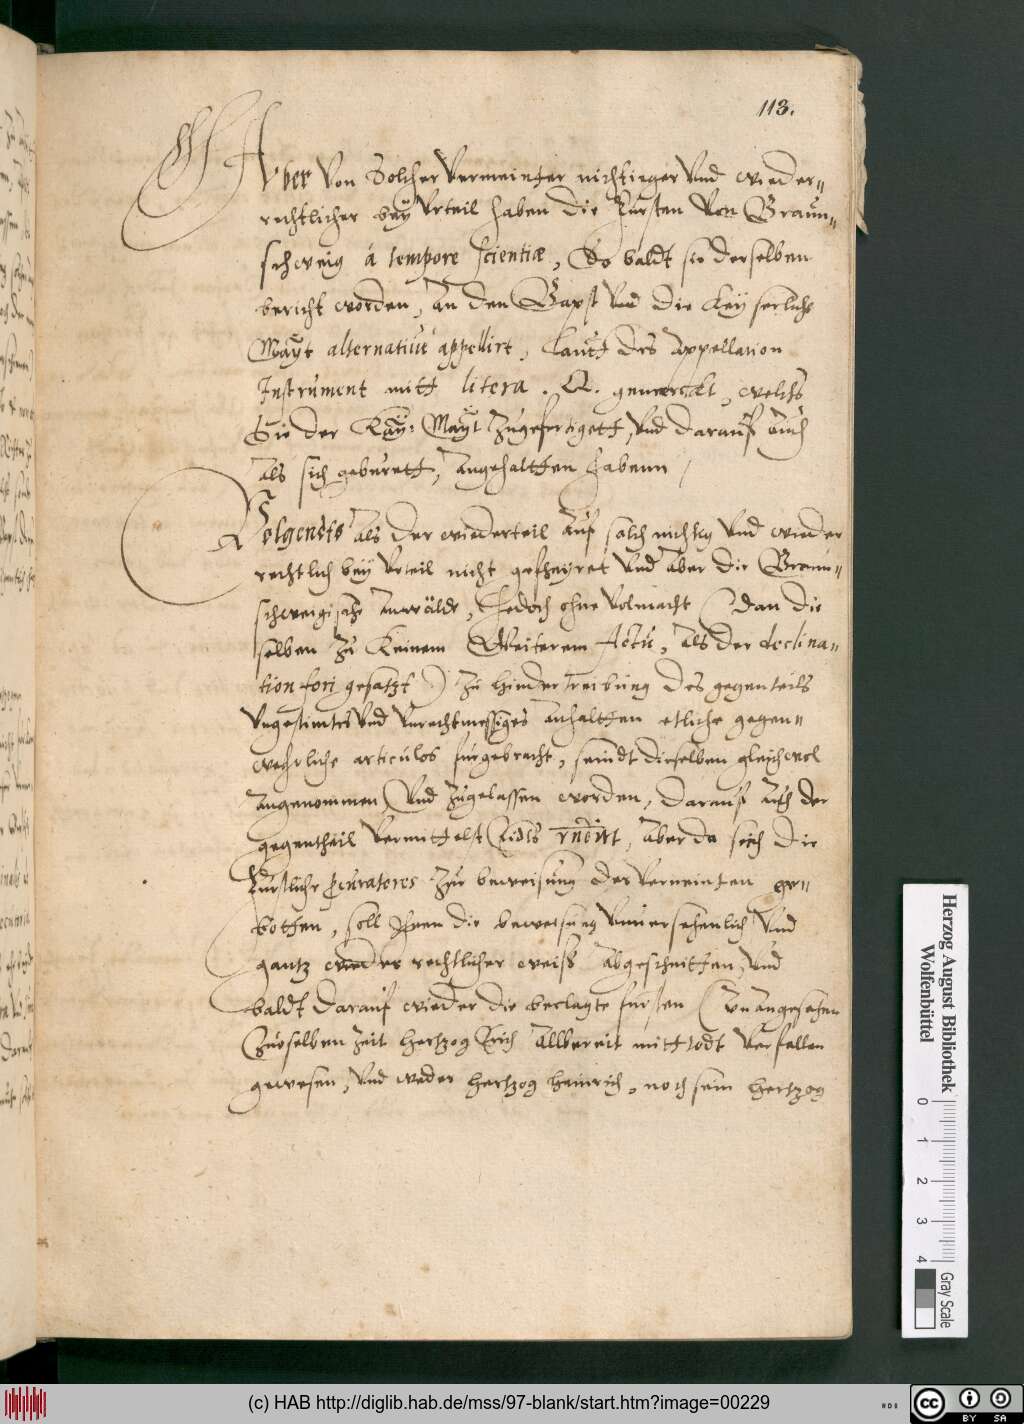 113.
Aber von Solcher vermeinter nichtiger vnd wieder„
rechtlicher beÿ vrteil haben die Fursten von Braun„
schweig á tempore scientiæ, So baldt sie derselben
bericht worden, an den Bapst vnd die Keÿserliche
Maÿt alternatiuè appellirt, lautt des appellation
Instrument mitt litera . Q. gemerckt, welchs
Sie der Kaÿ: Maÿt zugefertigett, vnd darauf auch
als sich geburett, angehaltten habenn /
Folgendts als der wiederteil auf solch nichtig vnd wieder
rechtlich beÿ vrteil nicht gefeÿret vnd aber die Braun„
schweigische anwälde, Jedoch ohne volmacht (dan die
selben zu Keinem Weiterem Actu, als der declina„
tion fori gesatzt) zu hindertreibung des gegenteils
vngestimtes vnd vnrechtmessiges anhaltten etliche gegen„
wehrliche articulos furgebracht, seindt dieselben gleichwol
angenommen vnd zugelassen worden, darauf auch der
gegentheil vermittelst Eidts, aber da sich die
Furstliche procuratores zur beweisung des verneinten er„
botten, soll Ihnen die beweisung vnuersehenlich vnd
gantz wieder rechtlicher weiss abgeschnitten, vnd
baldt darauf wieder die beclagte fursten (vnangesehen
Zurselben zeit hertzog Erich allbereit mitt todt verfallen
gewesen, vnd weder hertzog heinrich, noch sein hertzog
Herzog August Bibliothek
Wolfenbüttel
0 1 2 3 4
Gray Scale
(c) HAB http://diglib.hab.de/mss/97-blank/start.htm?image=00229
cc BY SA